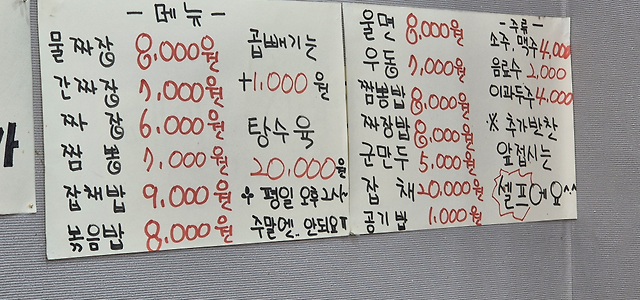 - 메뉴 -
물짜장 8,000원
간짜장 7,000원
짜장 6,000원
짬뽕 7,000원
잡채밥 9,000원
볶음밥 8,000원
곱빼기는
+1,000원
탕수육
20,000원
평일 오후2시~
주말엔.. 안되요ㅠ
울면 8,000원
우동 7,000원
짬뽕밥 8,000원
짜장밥 8,000원
군만두 5,000원
잡채 20,000원
공기밥 1,000원
- 주류 -
소주, 맥주 4,000
음료수 2,000
이과두주 4,000
※ 추가반찬
앞접시는
셀프에요^^